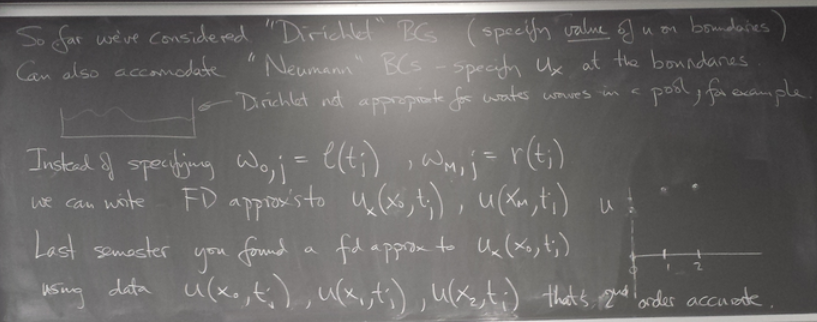 So far we've considered "Dirichlet" BCs (specify value of u on boundaries)
Can also accomodate "Neumann" BCs - specify u_x at the boundaries.
← Dirichlet not appropriate for water waves in a pool, for example.
Instead of specifying w_{0,j} = l(t_j), w_{M,j} = r(t_j)
we can write FD approx's to u_x(x_0,t_j), u(x_M,t_j)
u
Last semester you found a fd approx to u_x(x_0,t_j)
0 1 2
using data u(x_0,t_j), u(x_1,t_j), u(x_2,t_j) that's 2nd order accurate.